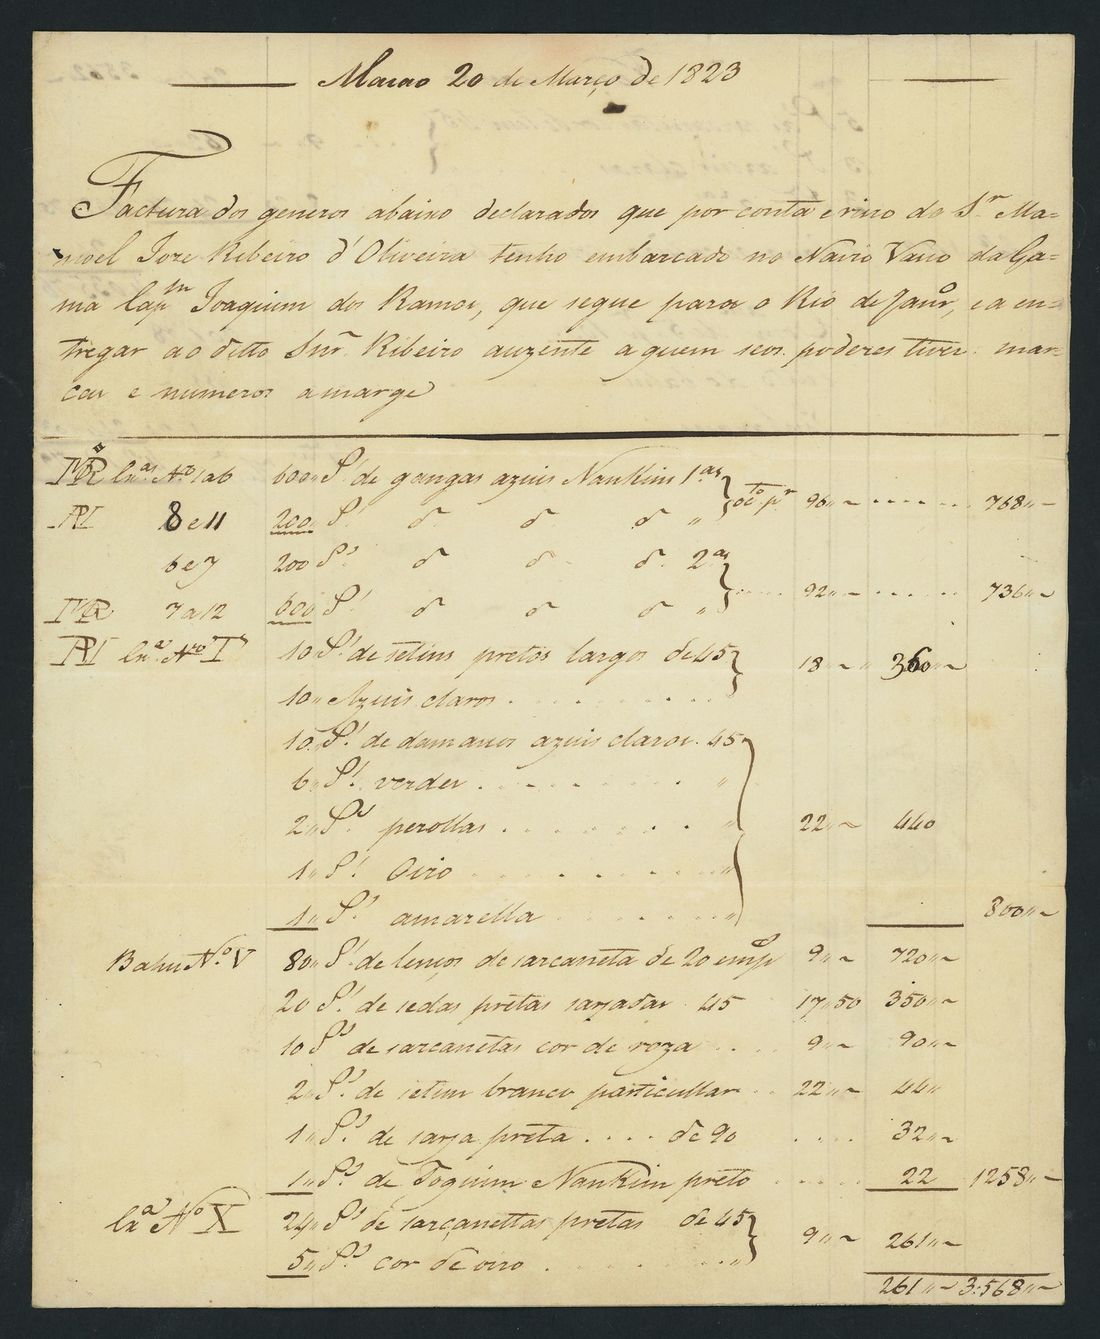 Macao 20 de Março de 1823
Factura dos generos abaixo declarados que por conta e risco do S.r Ma=
noel Joze Ribeiro d'Oliveira tenho embarcado no Navio Vasco da Ga=
ma Cap.m Joaquim dos Ramos, que segue para o Rio de Janr.o, e a en=
tregar ao ditto Snr. Ribeiro auzente a quem seos poderes tiver: mar=
cas e numeros a marge
MR Cx.as N.o 1 a 6 600 P.s de gangas azuis Nankim 1.as 96 " ~ 768 " ~
AI 8 e 11 200 " P.s d d d "
6 e 7 200 P.s d d d. 2.as
MR 7 a 12 600 P.s d d d " 92 " ~ 736 " ~
AI Cx.a N.o T 10 P.s de setins pretos largos de 45 18 " ~ 360 " ~
10 " Azuis claros
10 P.s de damascos azuis claros 45
6 " P.s verdes "
2 " P.s perollas " 22 " ~ 440
1 " P.s Oiro "
1 " P.s amarella " 800 " ~
Bahu N.o V 80 " P.s de lenços de sarcaneta de 20 em p.ç 9 " ~ 720 " ~
20 P.s de sedas pretas sarjadas 45 17 " 50 350 " ~
10 P.s de sarcanetas cor de roza 9 " ~ 90 " ~
2 " P.s de setim branco particullar 22 " ~ 44 "
1 " P.s de sarja preta de 90 32 " ~
1 " P.s de Toquim Nankim preto 22 1258 " ~
Cx.a N.o X 24 " P.s de sarcanettas pretas de 45
5 " P.s cor de oiro " 9 " ~ 261 " ~
261 " ~ 3:568 " ~